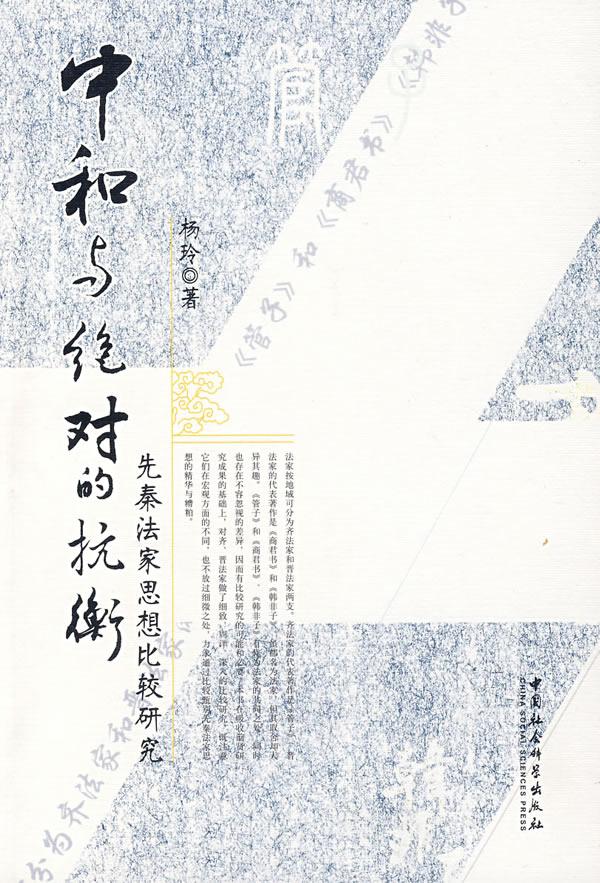 中和与绝对的抗衡
先秦法家思想比较研究
杨玲◎著
《管子》和《商君书》《韩非子
分为齐法家和晋法家
法家按地域可分为齐法家和晋法家两支。齐法家的代表著作是《管子》，晋
法家的代表著作是《商君书》和《韩非子》。虽都名为法家，但其取舍却大
异其趣。《管子》和《商君书》、《韩非子》有作为法家的共同之处，同时
也存在不容忽视的差异，因而有比较研究的可能和必要。本书在吸收前贤研
究成果的基础上，对齐、晋法家做了细致、深入的比较研究，既注意
它们在宏观方面的不同，也不放过细微之处，力求通过比较甄别先秦法家思
想的精华与糟粕。
中国社会科学出版社
CHINA SOCIAL SCIENCES PRESS